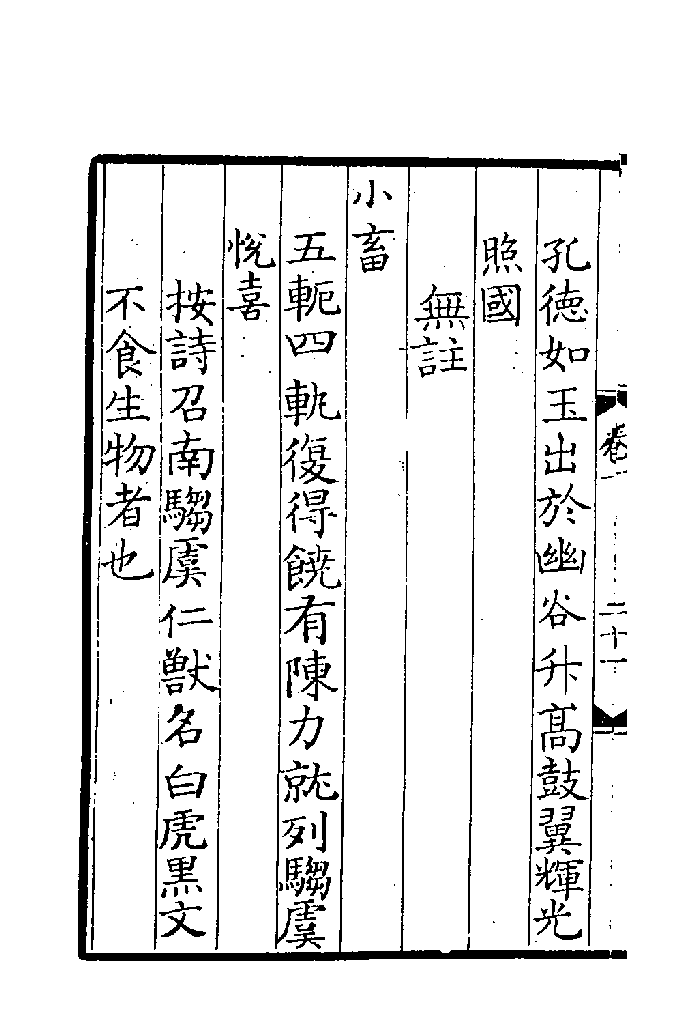 孔德如玉出於幽谷升髙鼓翼輝光
照國
無註
小畜
五軛四軌復得饒有陳力就列騶虞
悅喜
按詩召南騶虞仁獸名白虎黒文
不食生物者也
卷一
二十一